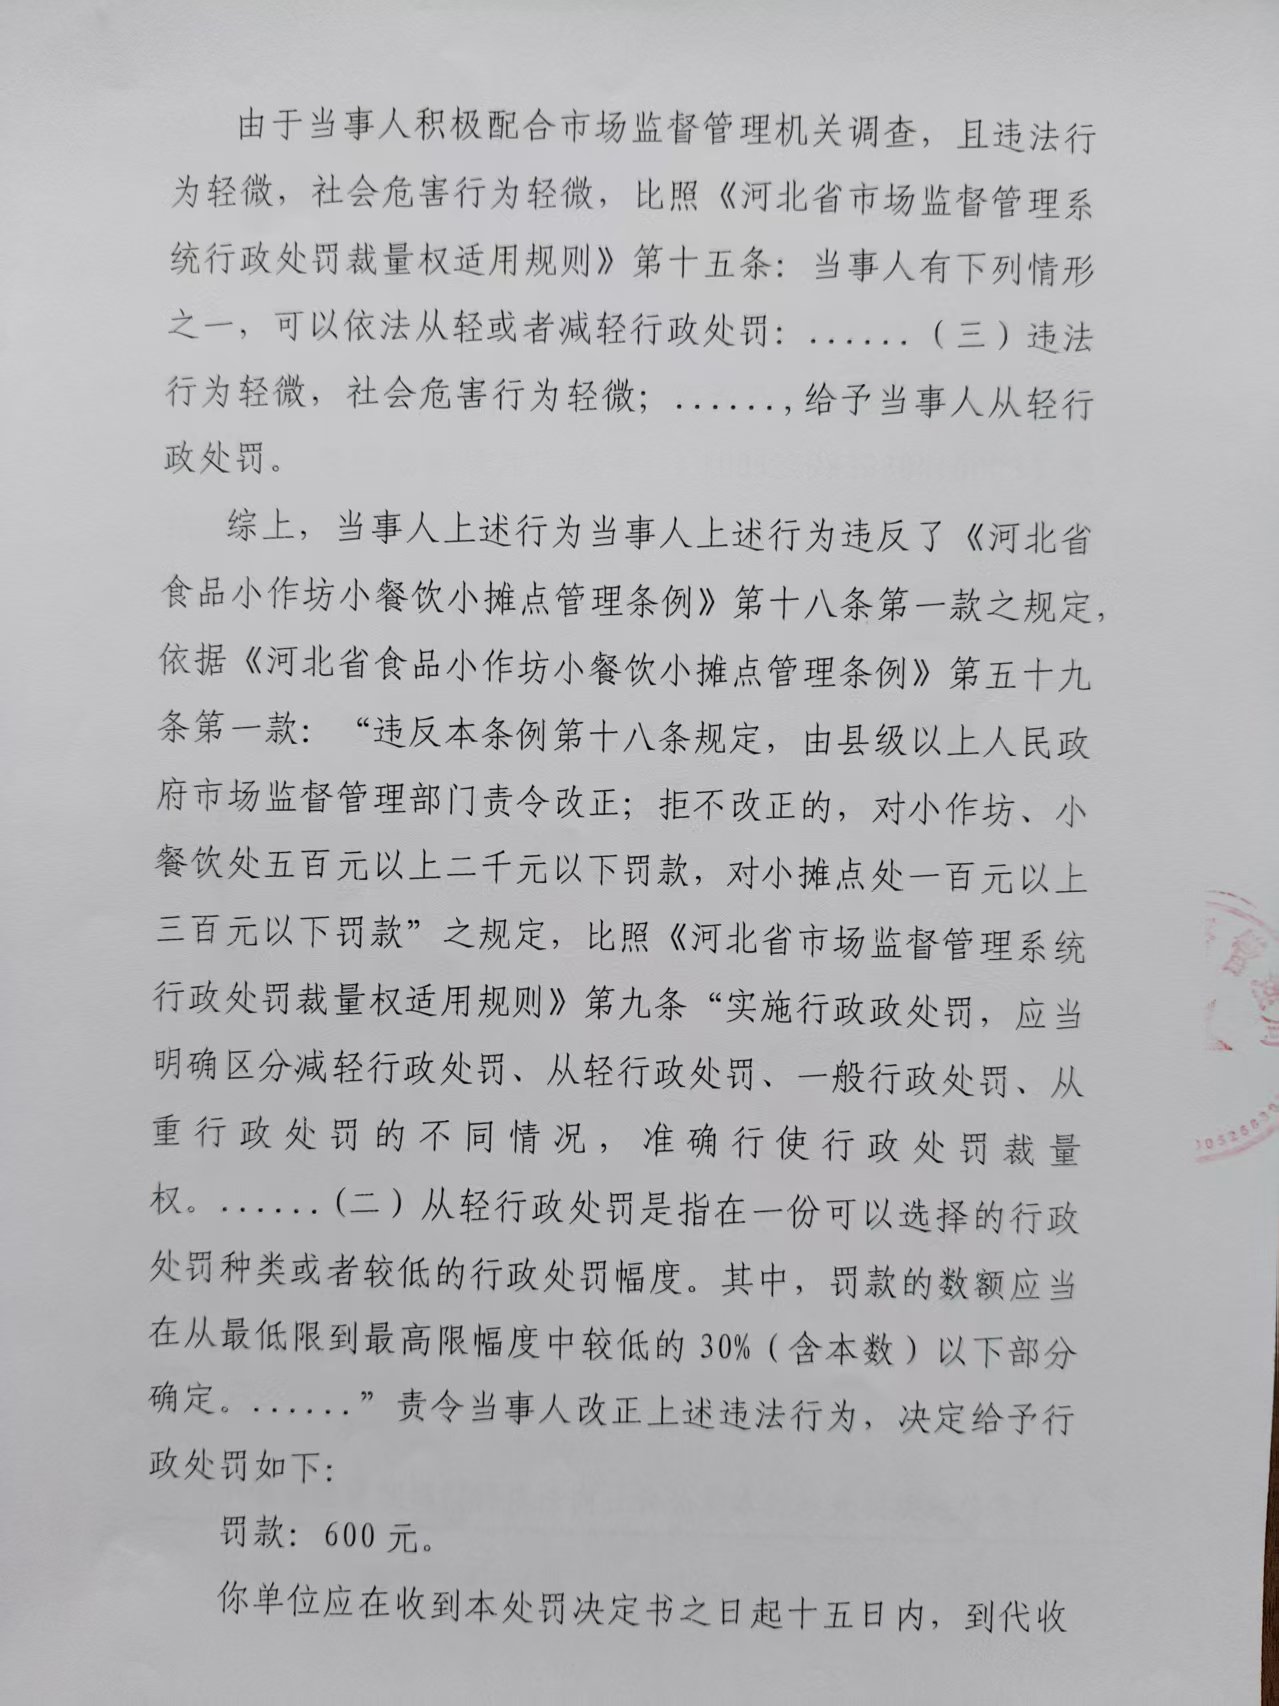 由于当事人积极配合市场监督管理机关调查，且违法行
为轻微，社会危害行为轻微，比照《河北省市场监督管理系
统行政处罚裁量权适用规则》第十五条：当事人有下列情形
之一，可以依法从轻或者减轻行政处罚：......（三）违法
行为轻微，社会危害行为轻微；......,给予当事人从轻行
政处罚。
综上，当事人上述行为当事人上述行为违反了《河北省
食品小作坊小餐饮小摊点管理条例》第十八条第一款之规定，
依据《河北省食品小作坊小餐饮小摊点管理条例》第五十九
条第一款：“违反本条例第十八条规定，由县级以上人民政
府市场监督管理部门责令改正；拒不改正的，对小作坊、小
餐饮处五百元以上二千元以下罚款，对小摊点处一百元以上
三百元以下罚款”之规定，比照《河北省市场监督管理系统
行政处罚裁量权适用规则》第九条“实施行政政处罚，应当
明确区分减轻行政处罚、从轻行政处罚、一般行政处罚、从
重行政处罚的不同情况，准确行使行政处罚裁量
权。......(二）从轻行政处罚是指在一份可以选择的行政
处罚种类或者较低的行政处罚幅度。其中，罚款的数额应当
在从最低限到最高限幅度中较低的 30%（含本数）以下部分
确定。......”责令当事人改正上述违法行为，决定给予行
政处罚如下：
罚款：600 元。
你单位应在收到本处罚决定书之日起十五日内，到代收
省